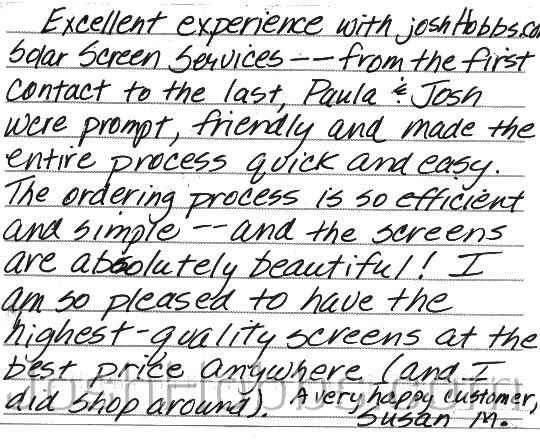 Excellent experience with joshHobbs.com
Solar Screen Services -- from the first
contact to the last, Paula & Josh
were prompt, friendly and made the
entire process quick and easy.
The ordering process is so efficient
and simple -- and the screens
are absolutely beautiful! I
am so pleased to have the
highest-quality screens at the
best price anywhere (and I
did shop around). A very happy customer,
Susan M.
JoshHobbs.com